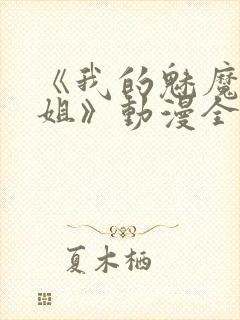 《我的魅魔
姐》動漫全
夏木栖